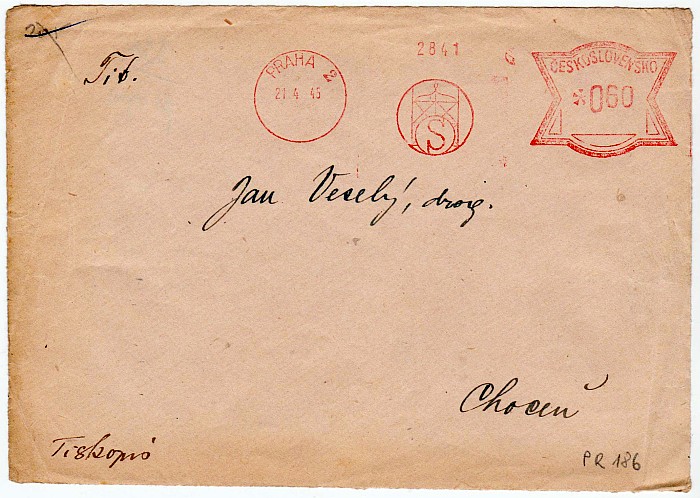 2841
PRAHA 2
21.4.45
S
ČESKOSLOVENSKO
*060
Tit.
Jan Veselý, drog.
Choceň
Tiskopis
PR 186